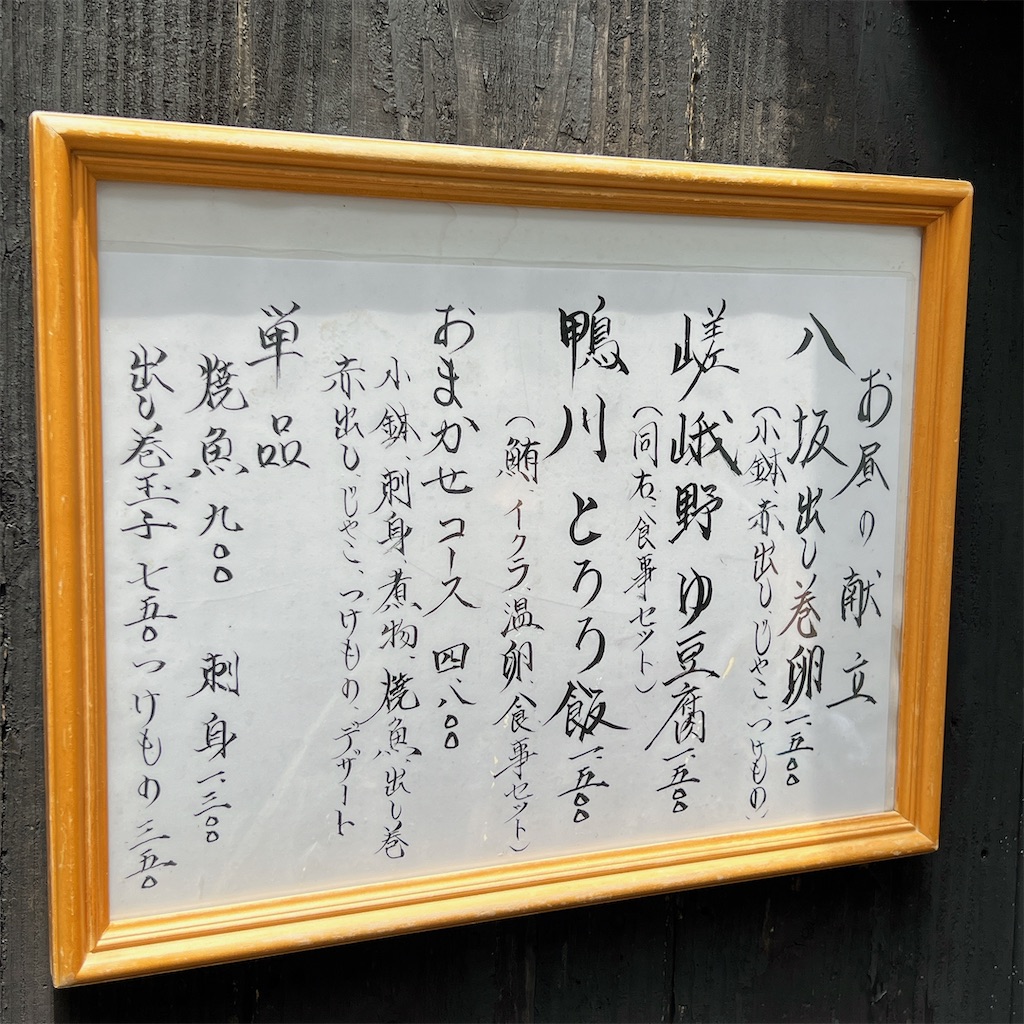 お昼の献立
八坂出し巻卵一、五〇〇
（小鉢、赤出し、じゃこ、つけもの）
嵯峨野ゆ豆腐一、五〇〇
（同右、食事セット）
鴨川とろろ飯一、五〇〇
（鮪、イクラ、温卵、食事セット）
おまかせコース 四、八〇〇
小鉢、刺身、煮物、焼魚、出し巻
赤出し、じゃこ、つけもの、デザート
単品
焼魚 九〇〇 刺身一、三〇〇
出し巻玉子 七五〇 つけもの 三五〇